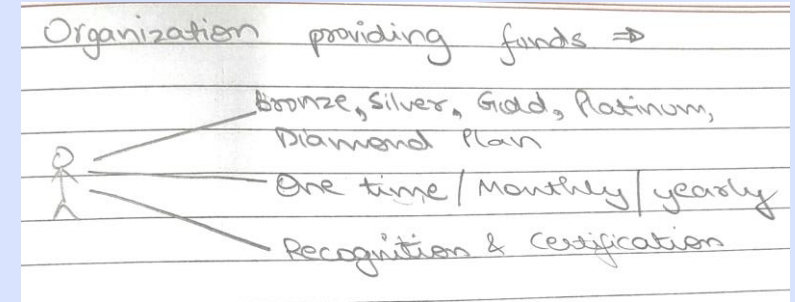 Organization providing funds ⇒
Bronze, Silver, Gold, Platinum,
Diamond Plan
One time / Monthly / yearly
Recognition & Certification